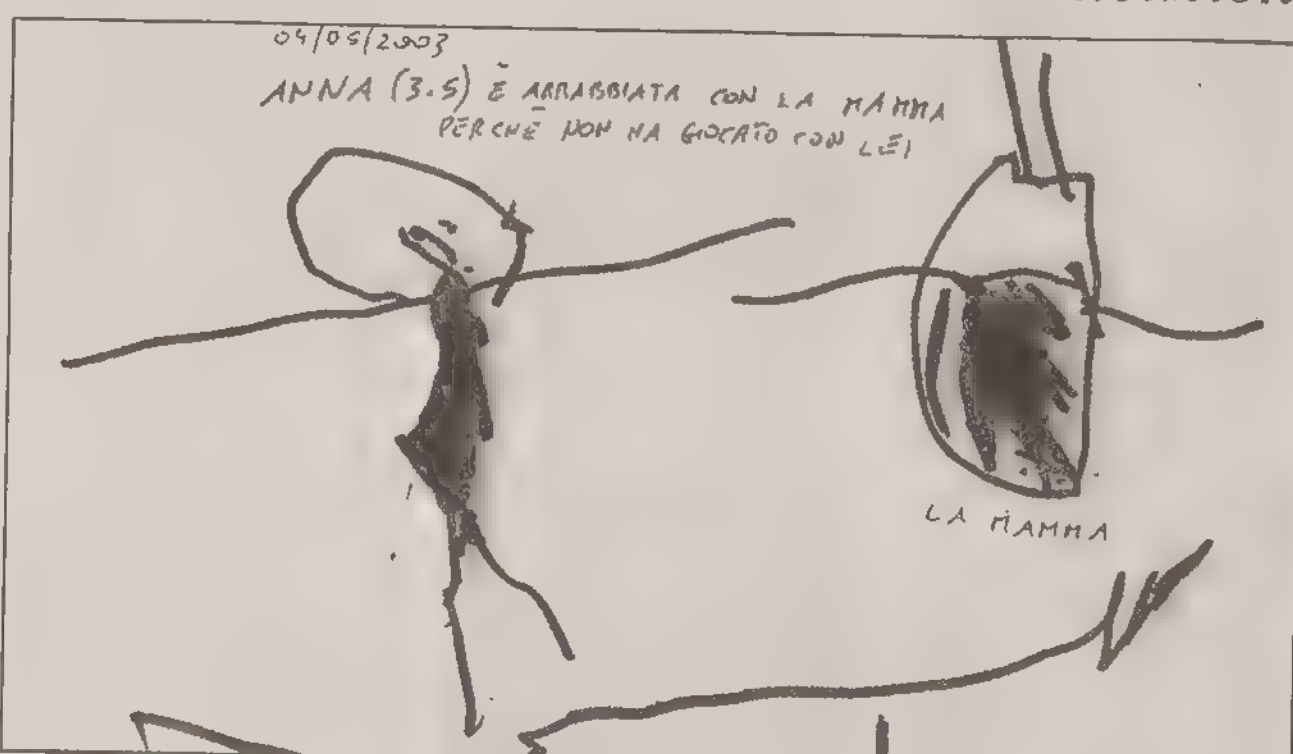 04/05/2003
ANNA (3.5) È ARRABBIATA CON LA MAMMA
PERCHÈ NON HA GIOCATO CON LEI
LA MAMMA